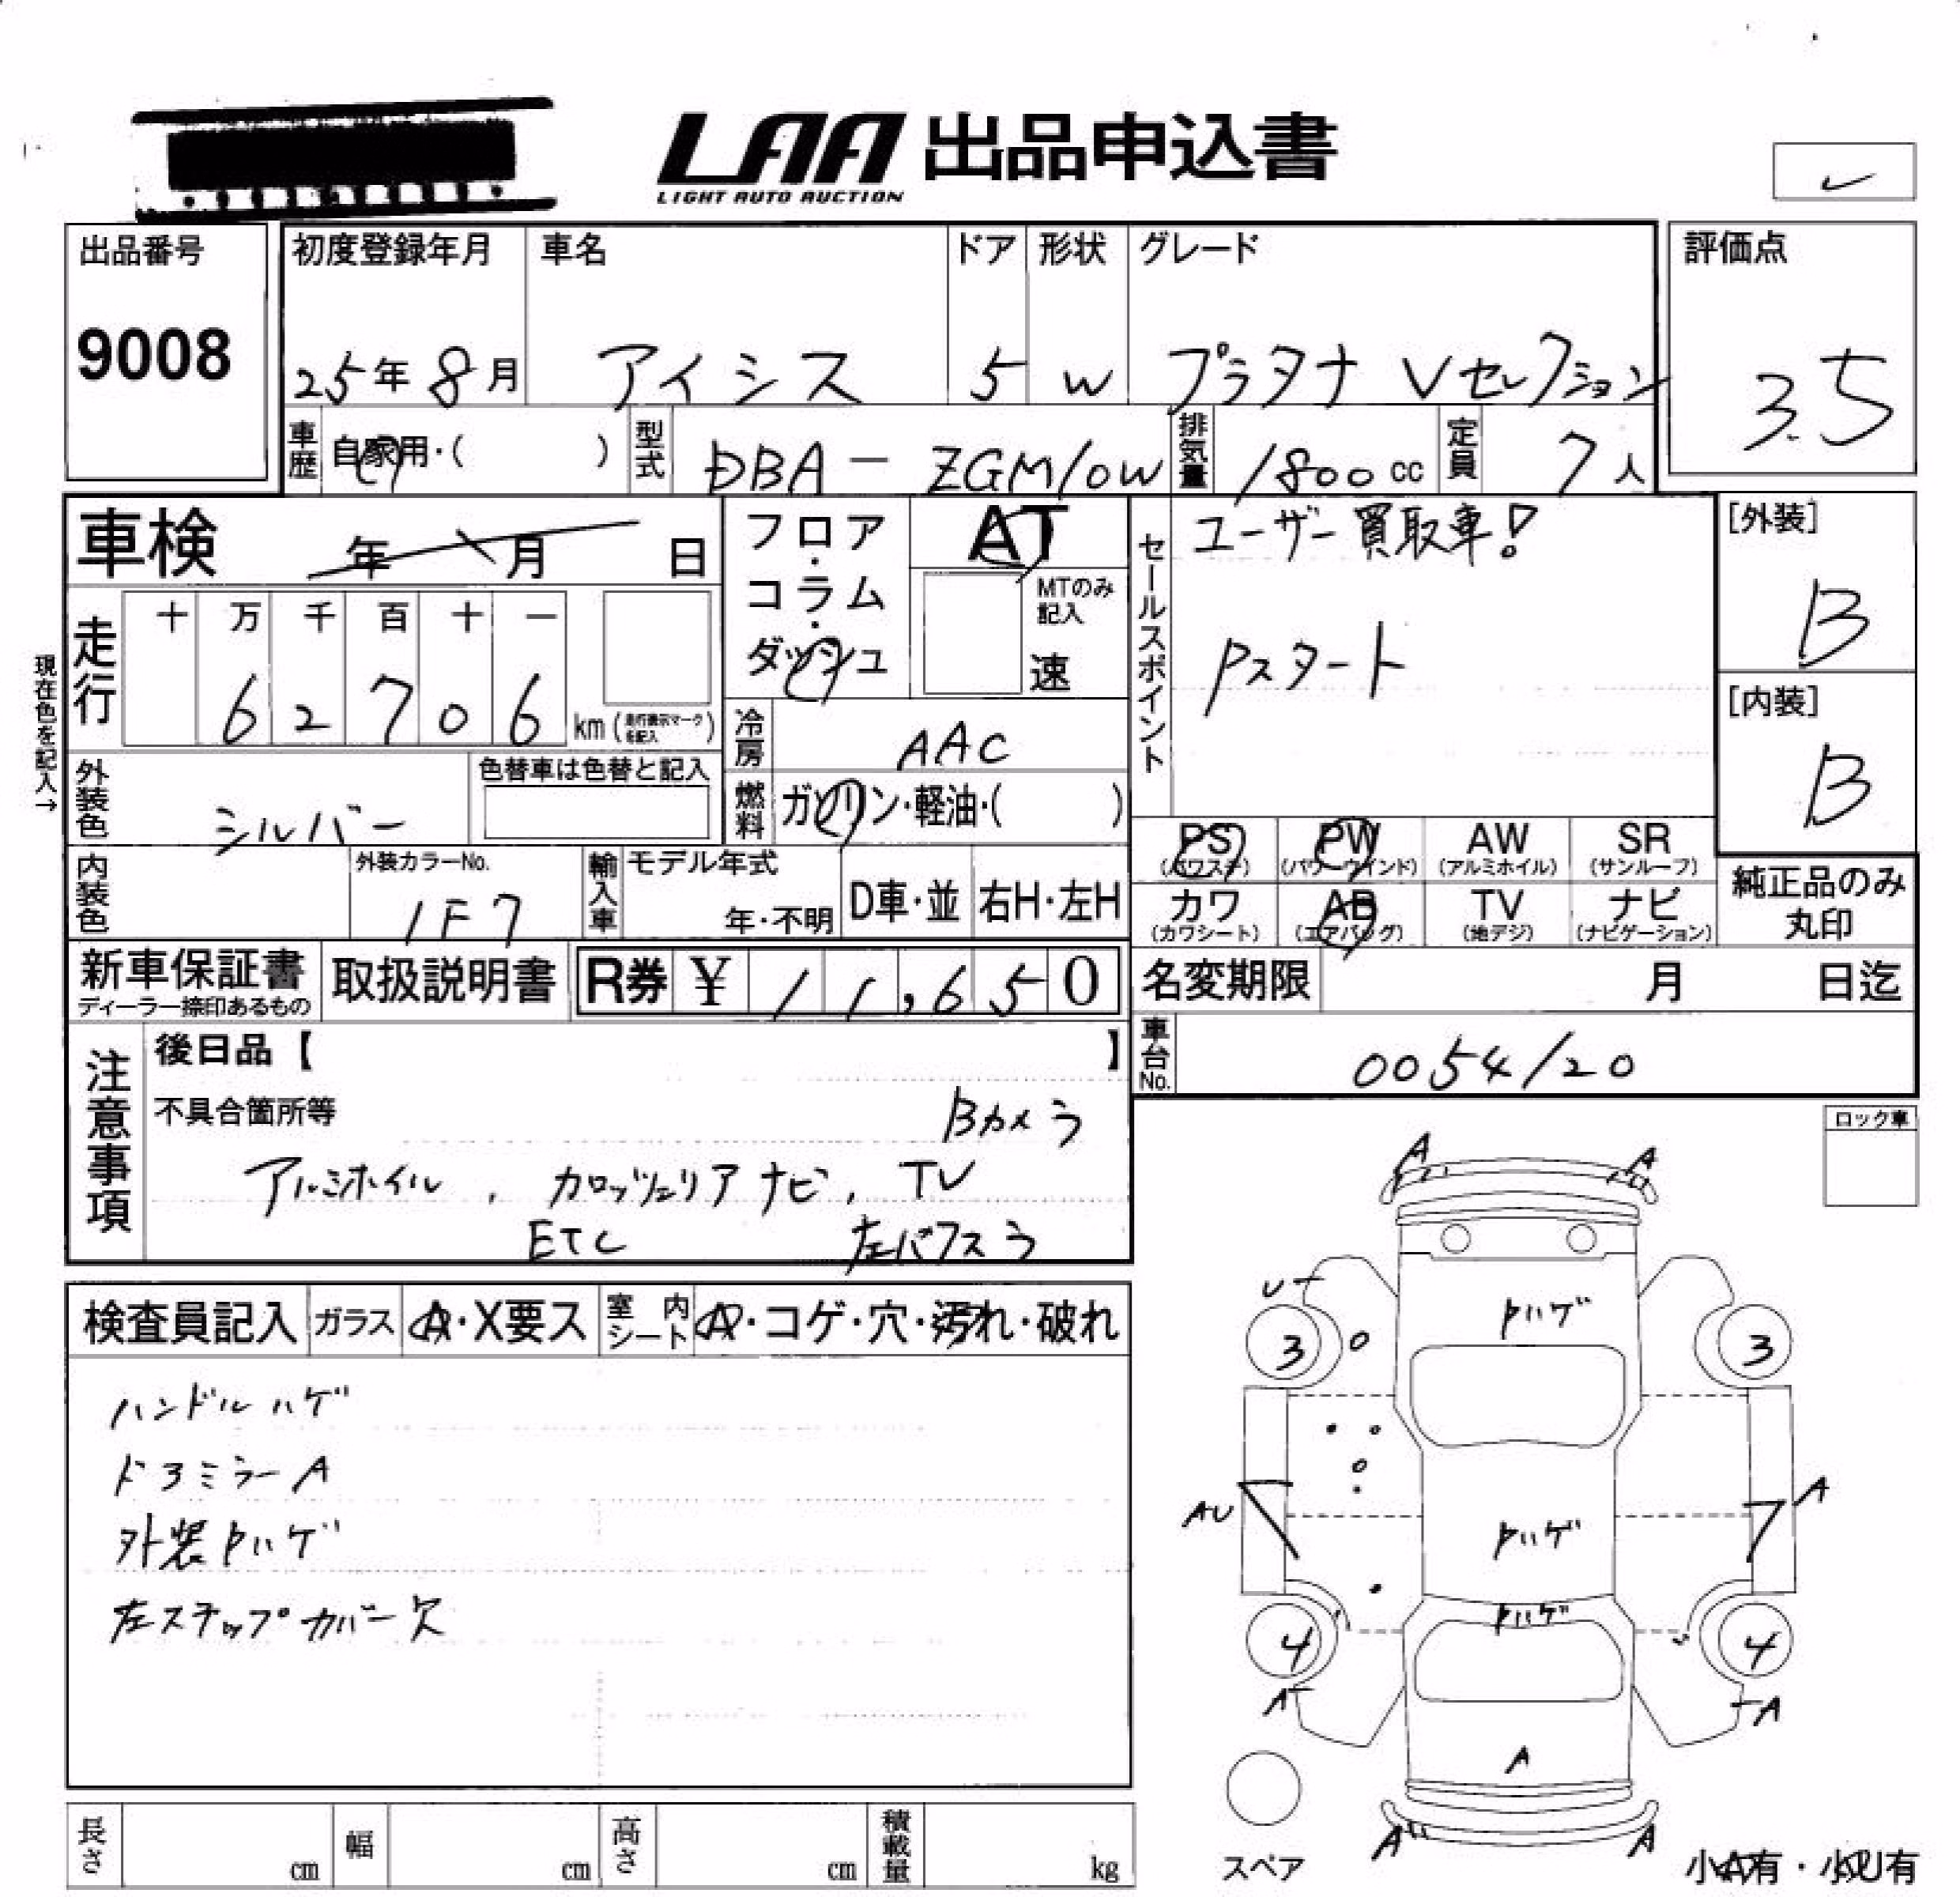 LAA 出品申込書
LIGHT AUTO AUCTION
出品番号
9008
初度登録年月
25年8月
車名
アイシス
ドア
5
形状
W
グレード
プラタナ Vセレクション
評価点
3.5
車歴 自家用・( )
型式 DBA-ZGM10W
排気量 1800cc
定員 7人
車検 年 月 日
フロア・コラム・ダッシュ
AT
MTのみ記入
速
セールスポイント
ユーザー買取車!
Pスタート
[外装]
B
[内装]
B
現在色を記入→
走行
十 万 千 百 十 一
6 2 7 0 6 km (走行表示マークを記入)
冷房 AAC
外装色 シルバー
色替車は色替と記入
燃料 ガソリン・軽油・( )
PS (パワステ) PW (パワーウインド) AW (アルミホイル) SR (サンルーフ)
カワ (カワシート) AB (エアバッグ) TV (地デジ) ナビ (ナビゲーション)
純正品のみ丸印
内装色
外装カラーNo.
1F7
輸入車 モデル年式
年・不明
D車・並
右H・左H
新車保証書
ディーラー捺印あるもの
取扱説明書
R券 ¥ 11,650
名変期限 月 日迄
車台No. 0054120
注意事項
後日品【 】
不具合箇所等
Bカメラ
アルミホイル, カロッツェリアナビ, TV
ETC
ロック車
検査員記入
ガラス A・X要ス
室内シート A・コゲ・穴・汚れ・破れ
ハンドルハゲ
ドアミラーA
外装Pハゲ
左ステップカバー欠
A A
U
3 3
Pハゲ
AU A
Pハゲ
Pハゲ
4 4
A A
A
A A
スペア
小A有・小U有
長さ cm
幅 cm
高さ cm
積載量 kg